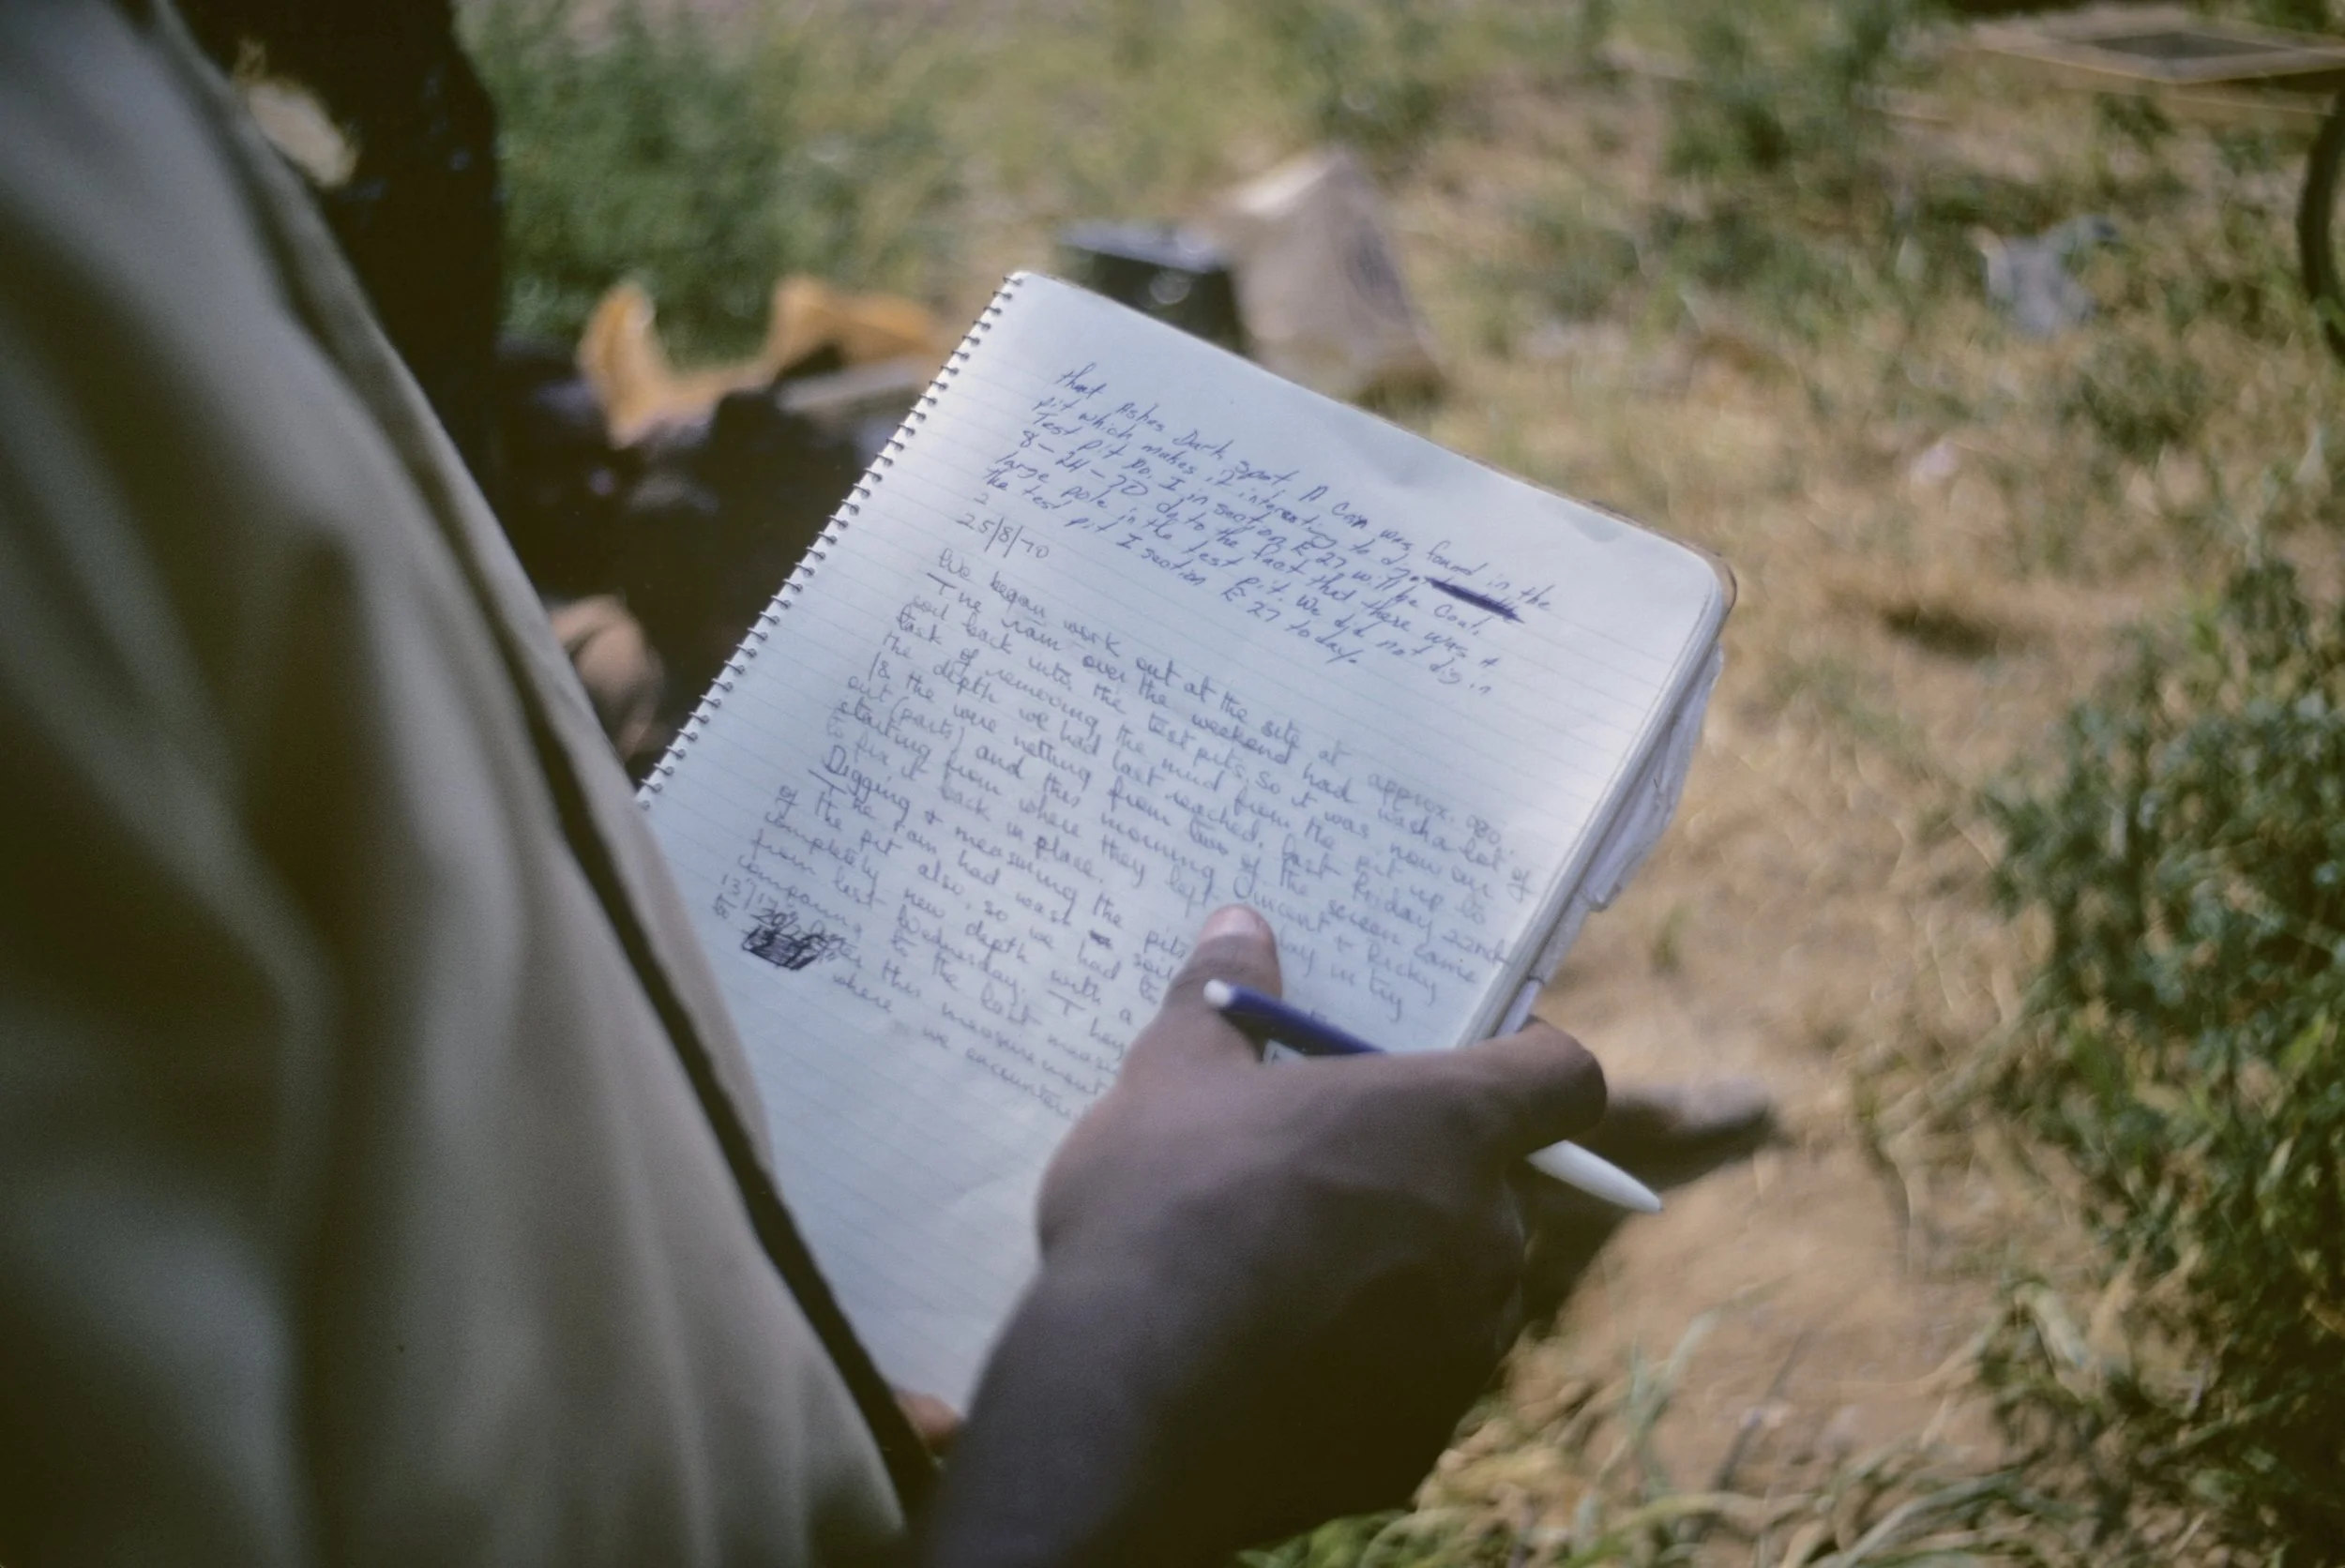 that Ashes Dark spot. A Can was found in the
pit which makes it interesting to dig
Test pit no. I in section E 27 will be Cont.
8-24-70 do to the fact that there was a
large pole in the test pit. We did not dig in
the test pit I section E 27 today.
2
25/8/70
We began work out at the site at approx.
The rain over the weekend had wash a lot of
soil back into the test pits, so it was now our
task of removing the mud from the pit up to
the depth we had last reached, last Friday 22nd
18 the wire netting from two of the screen came
out (parts) and this morning Vincent + Ricky
starting from where they left day in try
to fix it back in place.
Digging + measuring the pits
The rain had wash soil
of the pit also, so we had to
completly new depth with a
from last Wednesday. I hav
comparing to the last measur
13"/17" After this measurement
to 20"/ where we encounter